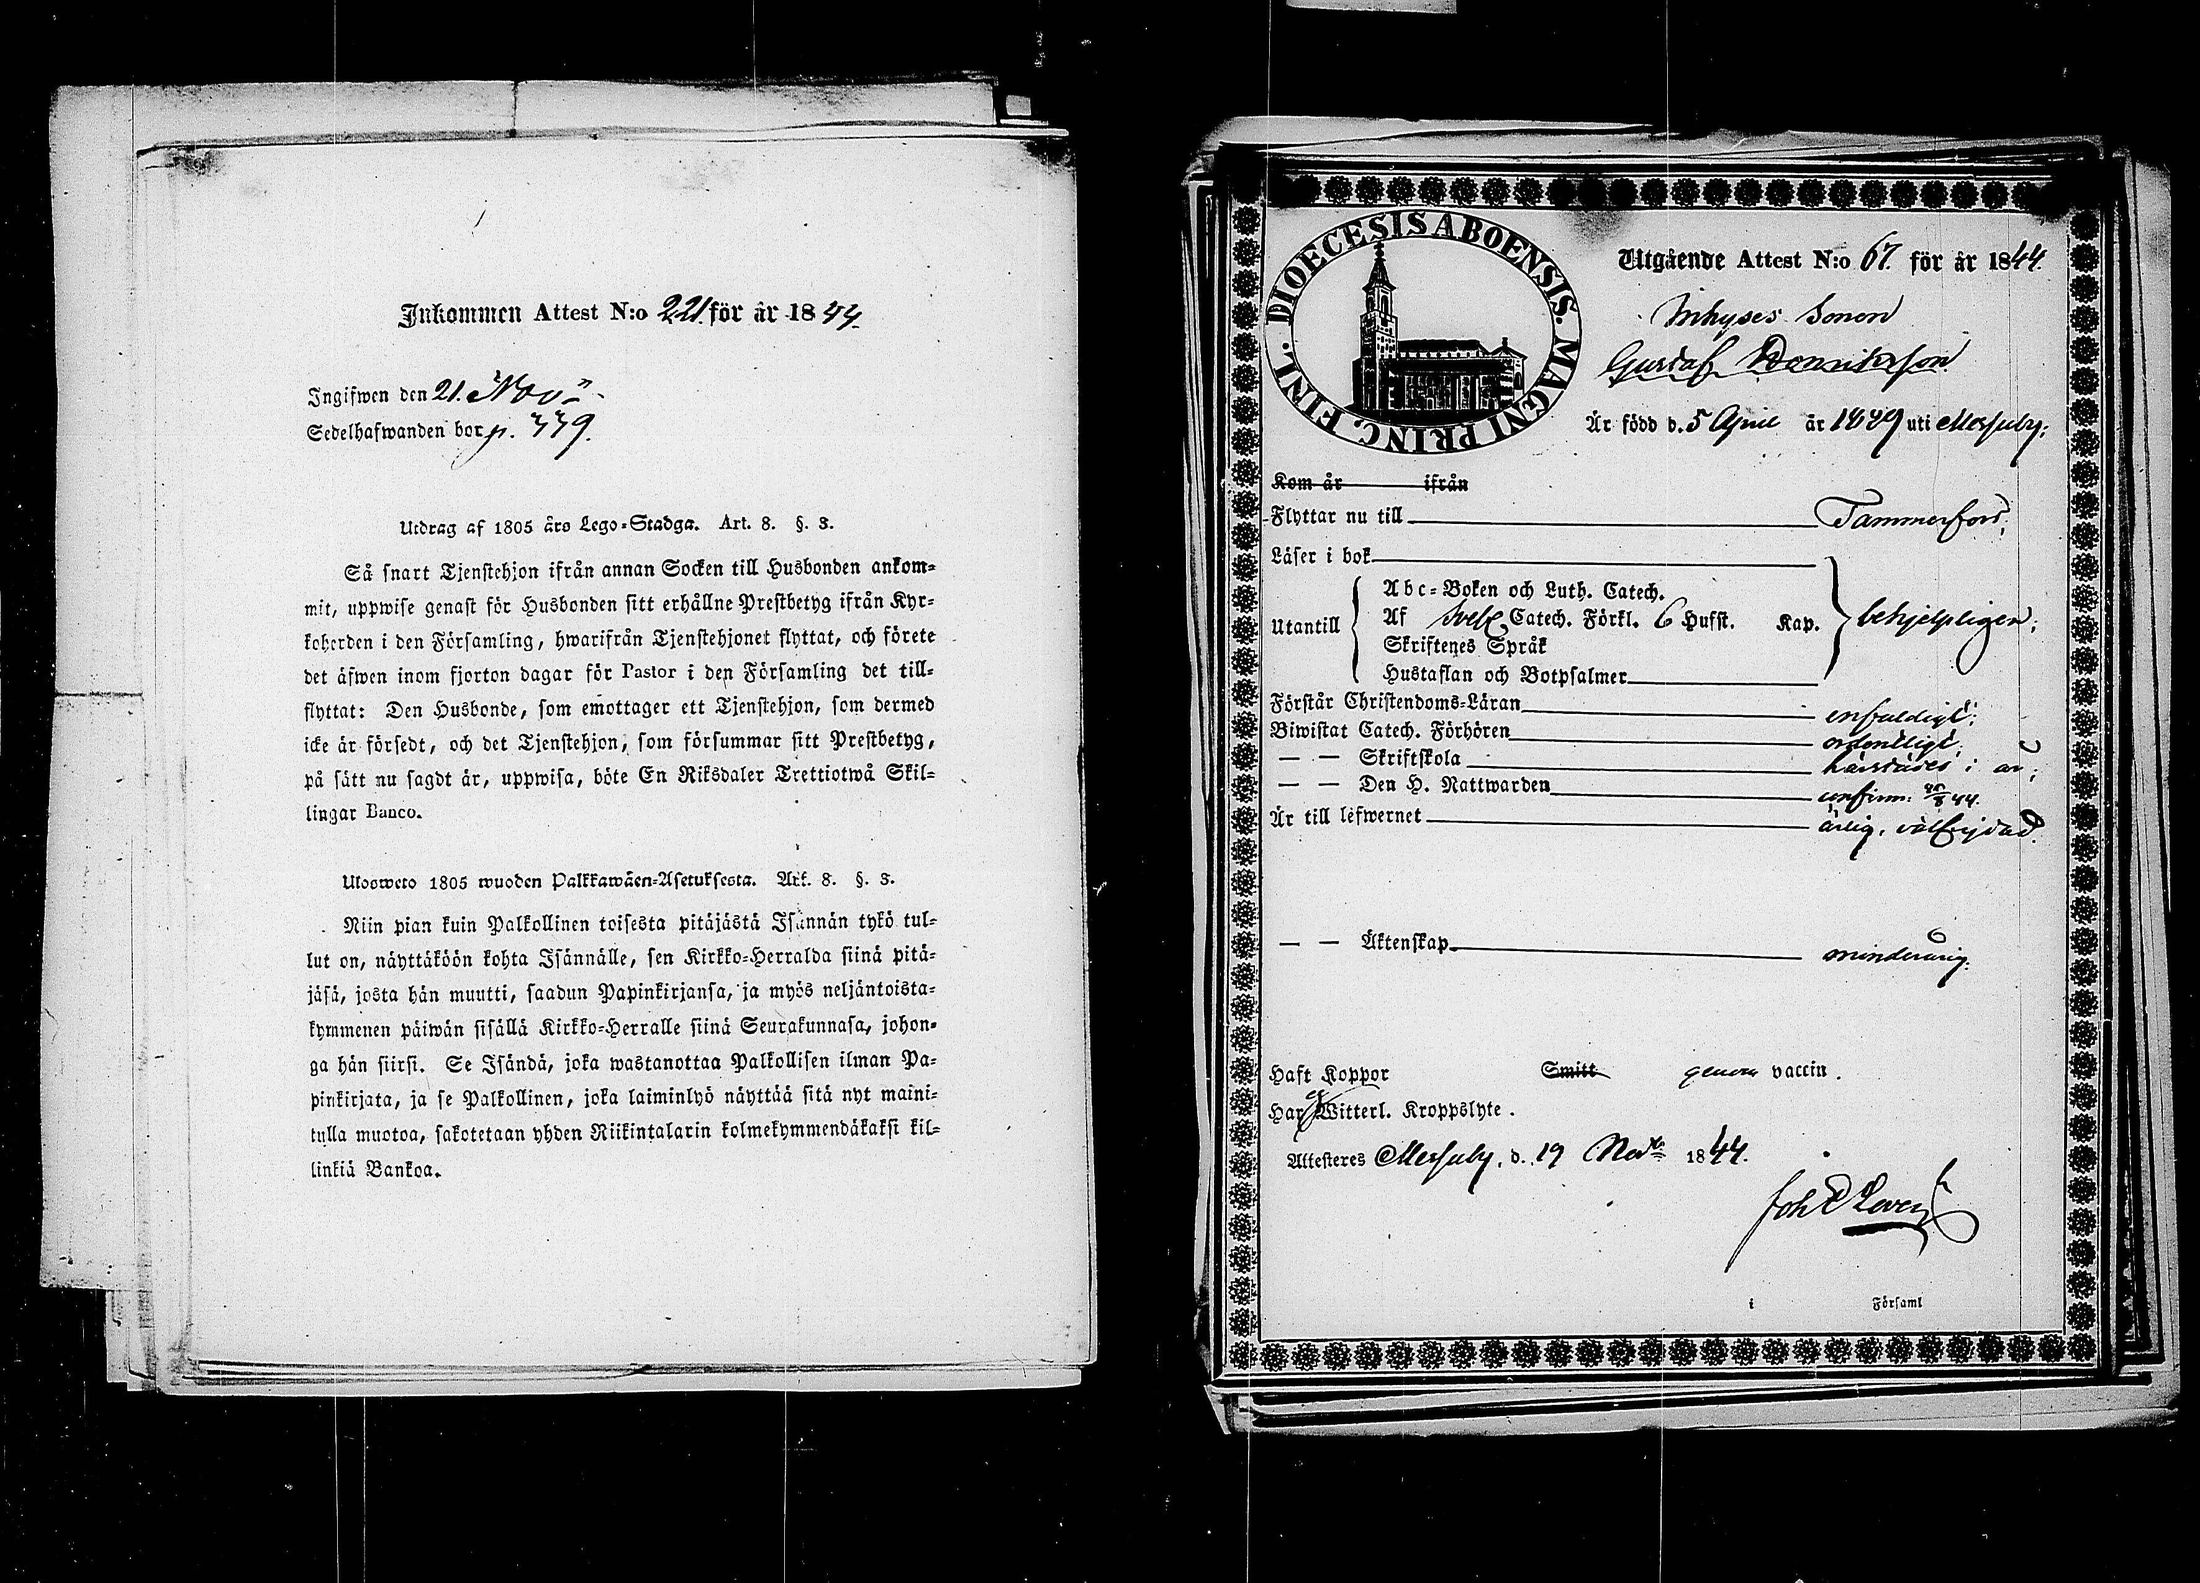 Inkommen Attest N:o 221. för år 1844.
Ingifwen den 21. Nov.
Sedelhafwanden bor p. 339.
Utdrag af 1805 års Lego-Stadga. Art. 8. §. 3.
Så snart Tjenstehjon ifrån annan Socken till Husbonden ankom-
mit, uppwise genast för Husbonden sitt erhållne Prestbetyg ifrån Kyr-
koherden i den Församling, hwarifrån Tjenstehjonet flyttat, och förete
det äfwen inom fjorton dagar för Pastor i den Församling det till-
flyttat: Den Husbonde, som emottager ett Tjenstehjon, som dermed
icke är försedt, och det Tjenstehjon, som försummar sitt Prestbetyg,
på sätt nu sagdt är, uppwisa, böte En Riksdaler Trettiotwå Skil-
lingar Banco.
Ulosweto 1805 wuoden Palkkawäen-Asetuksesta. Art. 8. §. 3.
Niin pian kuin Palkollinen toisesta pitäjästä Isännän tykö tul-
lut on, näyttäköön kohta Isännälle, sen Kirkko-Herralda siinä pitä-
jäsä, josta hän muutti, saadun Papinkirjansa, ja myös neljäntoista-
kymmenen päiwän sisällä Kirkko-Herralle siinä Seurakunnasa, johon-
ga hän siirsi. Se Isändä, joka wastanottaa Palkollisen ilman Pa-
pinkirjata, ja se Palkollinen, joka laiminlyö näyttää sitä nyt maini-
tulla muotoa, sakotetaan yhden Riikintalarin kolmekymmendäkaksi kil-
linkiä Bankoa.
DIOECESIS ABOENSIS. MAGNI PRINC. FINL.
Utgående Attest N:o 67. för år 1844.
Inhyses Sonen
Gustaf Henriksson
Är född d. 5 April år 1829 uti Messuby;
Kom år ifrån
Flyttar nu till Tammerfors;
Läser i bok
Abc-Boken och Luth. Catech.
Utantill Af Sveb. Catech. Förkl. 6 Hufst. Kap. behjelpligen;
Skriftenes Språk
Hustaflan och Botpsalmer
Förstår Christendoms-Läran enfaldigt;
Biwistat Catech. Förhören ordentligt;
— — Skriftskola härstädes i år;
— — Den H. Nattwarden confirm: 44.
Är till lefwernet ärlig, välfrejdad.
— — Äktenskap minderårig.
Haft Koppor Smitt genom vaccin.
Har ej Witterl. Kroppslyte.
Attesteres Messuby, d. 19 Nov. 1844.
Joh
i Församl